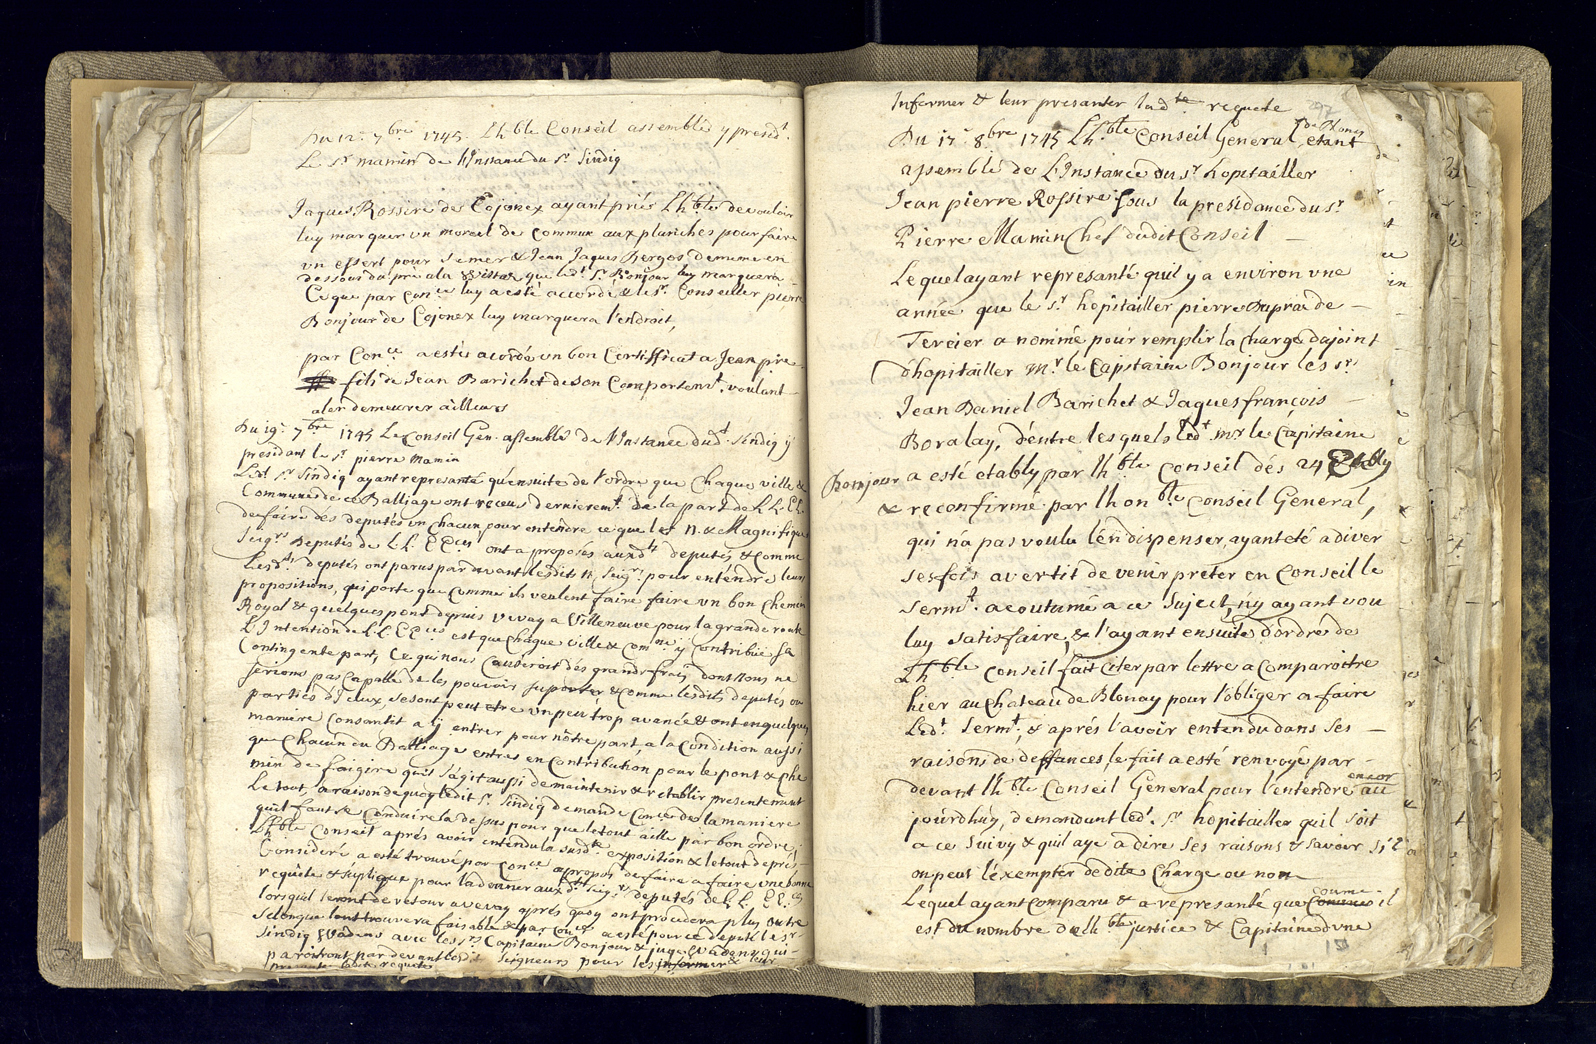 Du 12.e 7bre 1745. Lhble Conseil assemblé y presidt.
Le Sr mamin de l'Instance du Sr Sindiq
Jaques Rossire de Cojonex ayant priés Lhble de vouloir
luy marquer un morcel de commun aux pluriches pour faire
un essert pour semer & Jean Jaques Bergos dememe en
dessous du pré ala que ledt Sr Bonjour luy marquera
Ce que par Conce luy a esté accordé & le Sr Conseiller pierre
Bonjour de Cojonex luy marquera l'endroit,
par Conce a estés acordé un bon Certifficat a Jean pre
fils de Jean Barichet de son Comportemt. voulant
aler demeurer ailleurs
Du 19e 7bre 1745 Le Conseil Gen. assemblé de l'Instance dudt Sindiq y
presidant le Sr pierre Mamin
Ledt Sr Sindiq ayant representé qu'ensuite de l'ordre que Chaque ville &
Commune de ce Balliage ont receus dernieremt. de la part de LL. EE.
de faire des deputés un chacun pour entendre ce que les N. & Magnifiques
Seigrs Deputés de LL. EEces ont a proposés auxdts deputés, & comme
lesdts deputés ont parus par devant lesdits N. Seigrs pour entendre leurs
propositions, qui porte que comme ils veulent faire faire un bon chemin
Royal & quelques ponts depuis vevay a Villeneuve pour la grande route
L'Intention de LL EEces est que Chaque ville & Comne y contribue sa
Contingente part, Ce qui nous Causeroit des grands frais, dont Nous ne
serions pas Capable de les pouvoir suporter, & comme lesdits deputés ou
parties d'eux, se sont peut etre un peu trop avancé & ont en quelque
maniere consantit a y entrer pour nôtre part, a la condition aussi
que Chacun du Balliage entres en Contribution pour le pont & che
min de qu'il s'agit aussi de maintenir & retablir presentement
Le tout, a raison dequoy ledit Sr Sindiq demande Conce de la maniere
qu'il faut se Conduire la dessus pour que le tout aille par bon ordre,
Lhble Conseil aprés avoir entendu la susdte exposition & le tout de prés
Consideré a esté trouvé par Conce apropos de faire a faire une bonne
requête & suplique pour la donner auxdts Seigrs deputés de LL. EE.
lorsquil seront de retour a vevay aprés quoy ont procedera plus outre
selon que lont trouvera faisable & par Conce a esté pour ce deputé le Sr
Sindiq avec les Srs Capitaine Bonjour & juge qui
paroitront par devant lesdit Seigneurs pour les informer & leur
presenter ladite requête
Informer & leur presanter ladte requete
Du 17e 8bre 1745 Lh.ble Conseil General de Blonay étant
assemblé de L'Instance du sr hopitailler
Jean pierre Rossire sous la presidance du Sr
Pierre Mamin Chef dudit Conseil —
Lequel ayant representé quil y a environ une
année que le Sr hopitailler pierre Dupra de —
Tercier a nommé pour remplir la charge dajoint
d'hopitailler Mr le Capitaine Bonjour les Srs
Jean Daniel Barichet & Jaques françois —
Boralay, d'entre lesquels ledt Mr le Capitaine
Bonjour a esté etably par lhble Conseil dés 24
& reconfirmé par lhonble Conseil General,
qui n'a pas voulu l'en dispenser, ayant eté a diver
ses fois avertit de venir preter en Conseil le
sermt. acoutumé a ce sujet, n'y ayant vou
luy satisfaire, & l'ayant ensuite d'ordre de
Lhble Conseil fait citer par lettre a Comparoitre
hier au Chateau de Blonay pour l'obliger a faire
Ledt. Sermt., & aprés l'avoir entendu dans ses —
raisons de deffances, le fait a esté renvoyé par —
devant lhble Conseil General pour l'entendre encor au
jourdhuy, demandant ledt. Sr hopitailler quil soit
a ce suivy & quil aye a dire ses raisons & savoir si l'
on peut l'exempter de dite Charge ou non
Lequel ayant comparu & a representé que comme il
est du nombre de lhble justice & Capitaine d'une